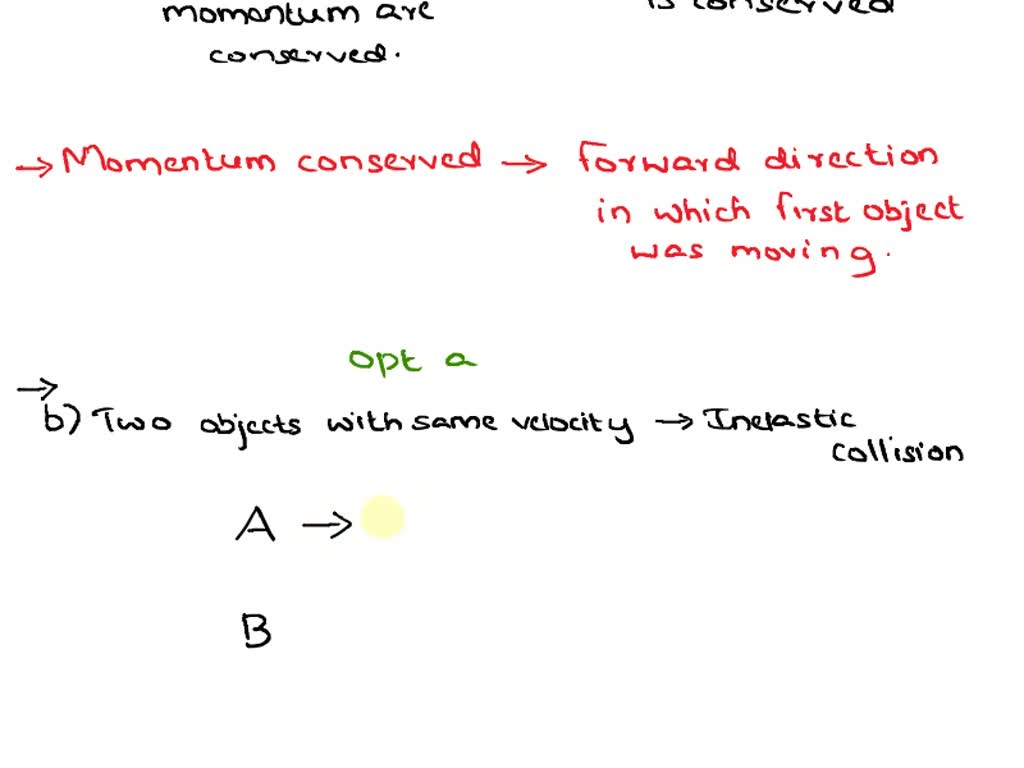 momentum are
is conserved
conserved.
→ Momentum conserved → forward direction
in which first object
was moving.
opt a
→
b) Two objects with same velocity → Inelastic
collision
A →
B